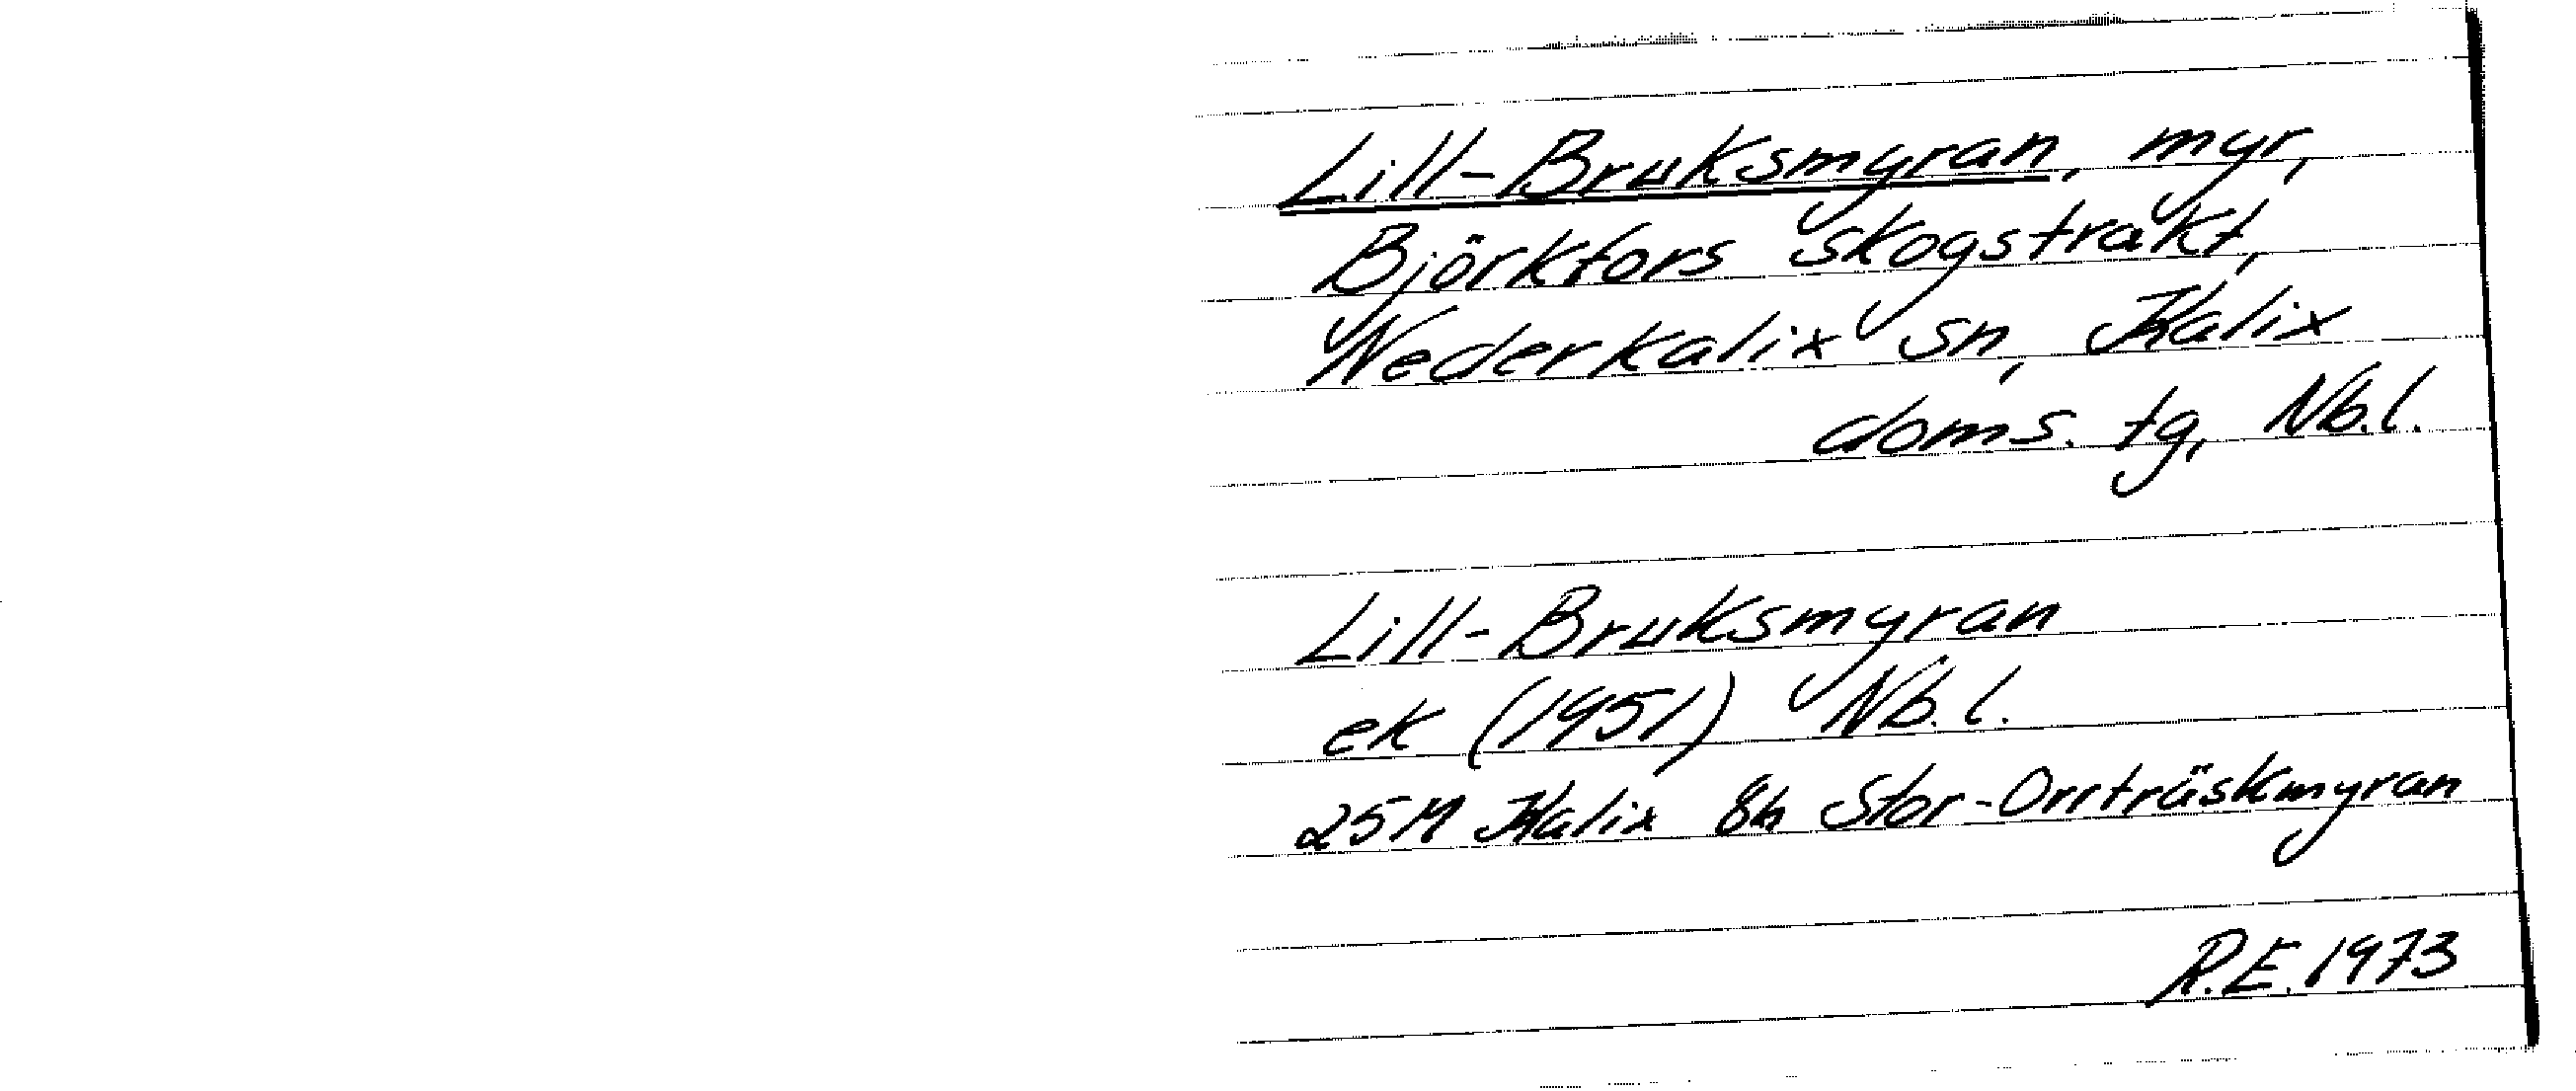 Lill-Bruksmyran, myr,
Björkfors skogstrakt,
Nederkalix sn, Kalix
doms. tg, Nb.l.
Lill-Bruksmyran
ek (1951) Nb.l.
25M Kalix 8h Stor-Orrträskmyran
R.E. 1973